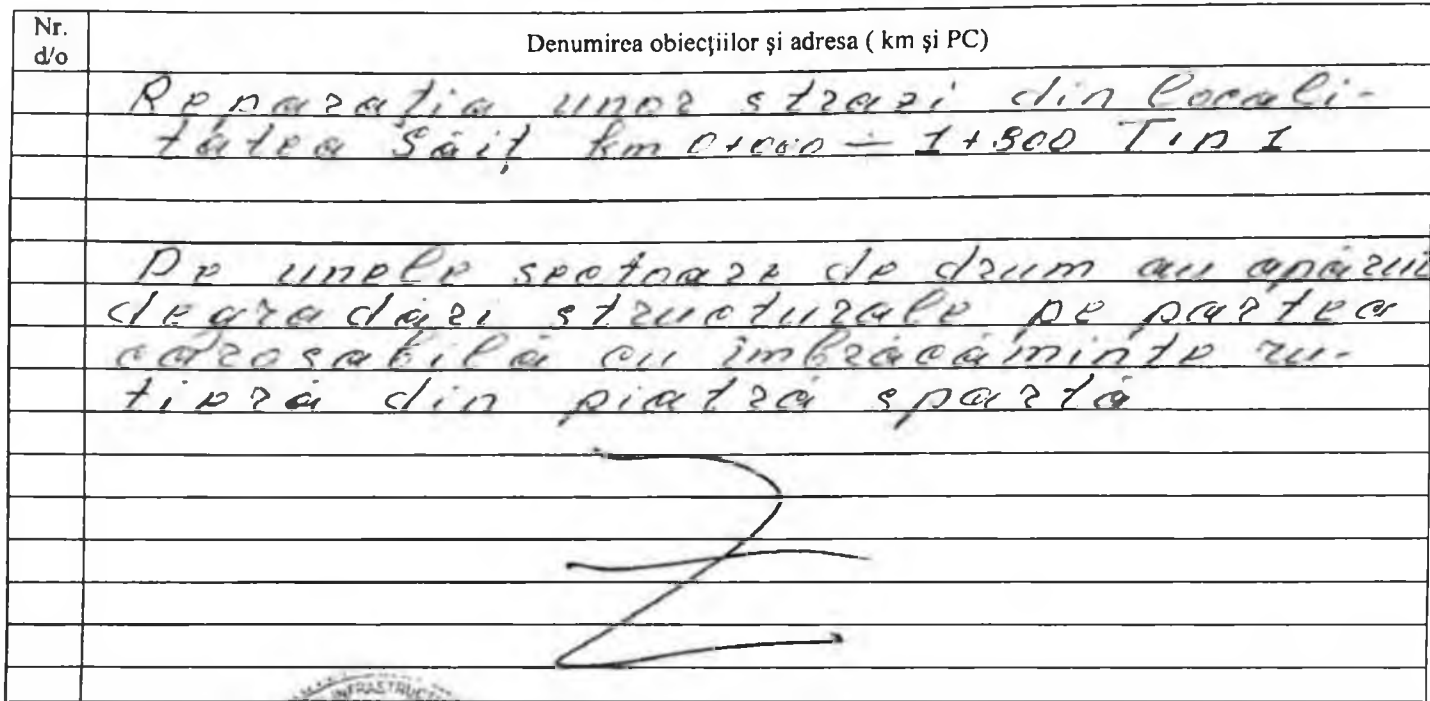 Nr. d/o
Denumirea obiecțiilor și adresa ( km și PC)
Reparația unor strazi din locali-
tatea Săiț km 0+000 ÷ 1+900 Tip 1
Pe unele sectoare de drum au apărut
degradări structurale pe partea
carosabilă cu îmbrăcăminte ru-
tieră din piatră spartă
INFRASTRUCT